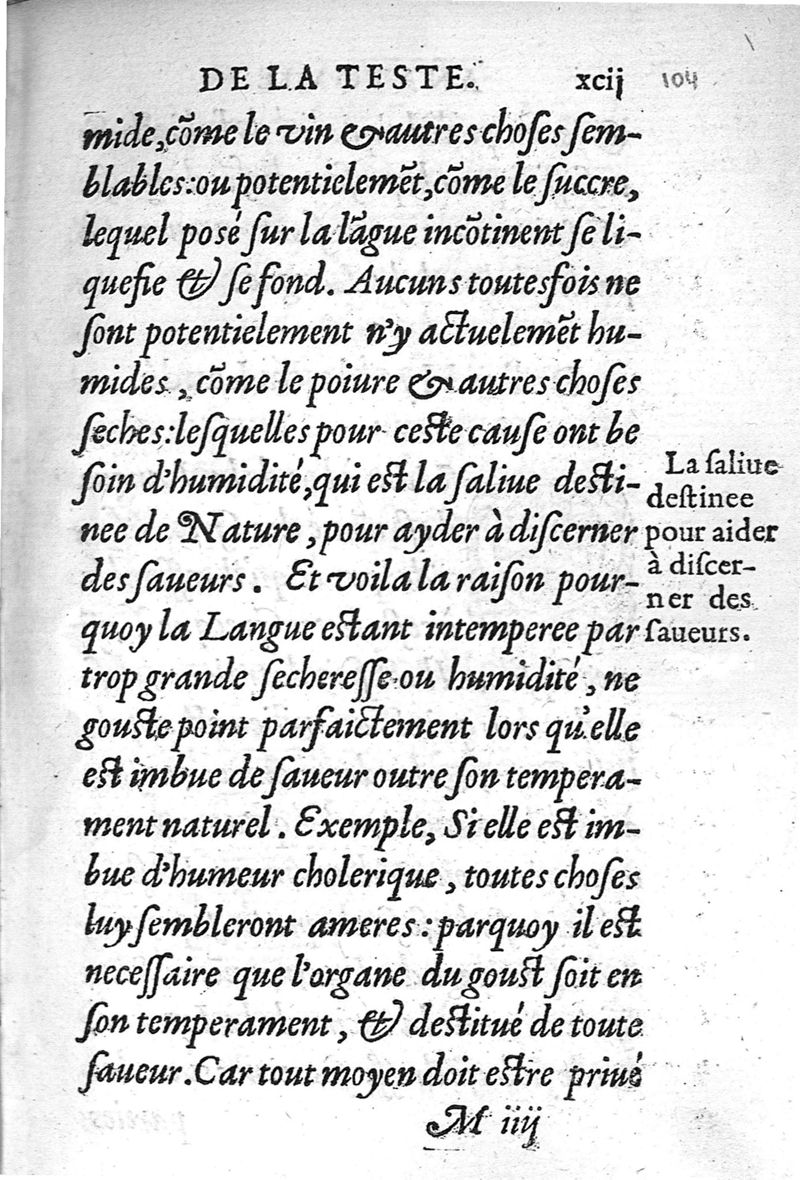 DE LA TESTE. xcij 104
mide, cõme le vin & autres choſes ſem-
blables: ou potentielemẽt, cõme le ſuccre,
lequel posé ſur la lãgue incõtinent ſe li-
quefie & ſe fond. Aucuns toutesfois ne
ſont potentielement n'y actuelemẽt hu-
mides, cõme le poiure & autres choſes
ſeches: leſquelles pour ceſte cauſe ont be
ſoin d'humidité, qui eſt la ſaliue deſti-
nee de Nature, pour ayder à diſcerner
des ſaueurs. Et voila la raiſon pour-
quoy la Langue eſtant intemperee par
trop grande ſechereſſe ou humidité, ne
gouſte point parfaictement lors qu'elle
eſt imbue de ſaueur outre ſon tempera-
ment naturel. Exemple, Si elle eſt im-
bue d'humeur cholerique, toutes choſes
luy ſembleront ameres: parquoy il eſt
neceſſaire que l'organe du gouſt ſoit en
ſon temperament, & deſtitué de toute
ſaueur. Car tout moyen doit eſtre priué
M iiij
La ſaliue
deſtinee
pour aider
à diſcer-
ner des
ſaueurs.